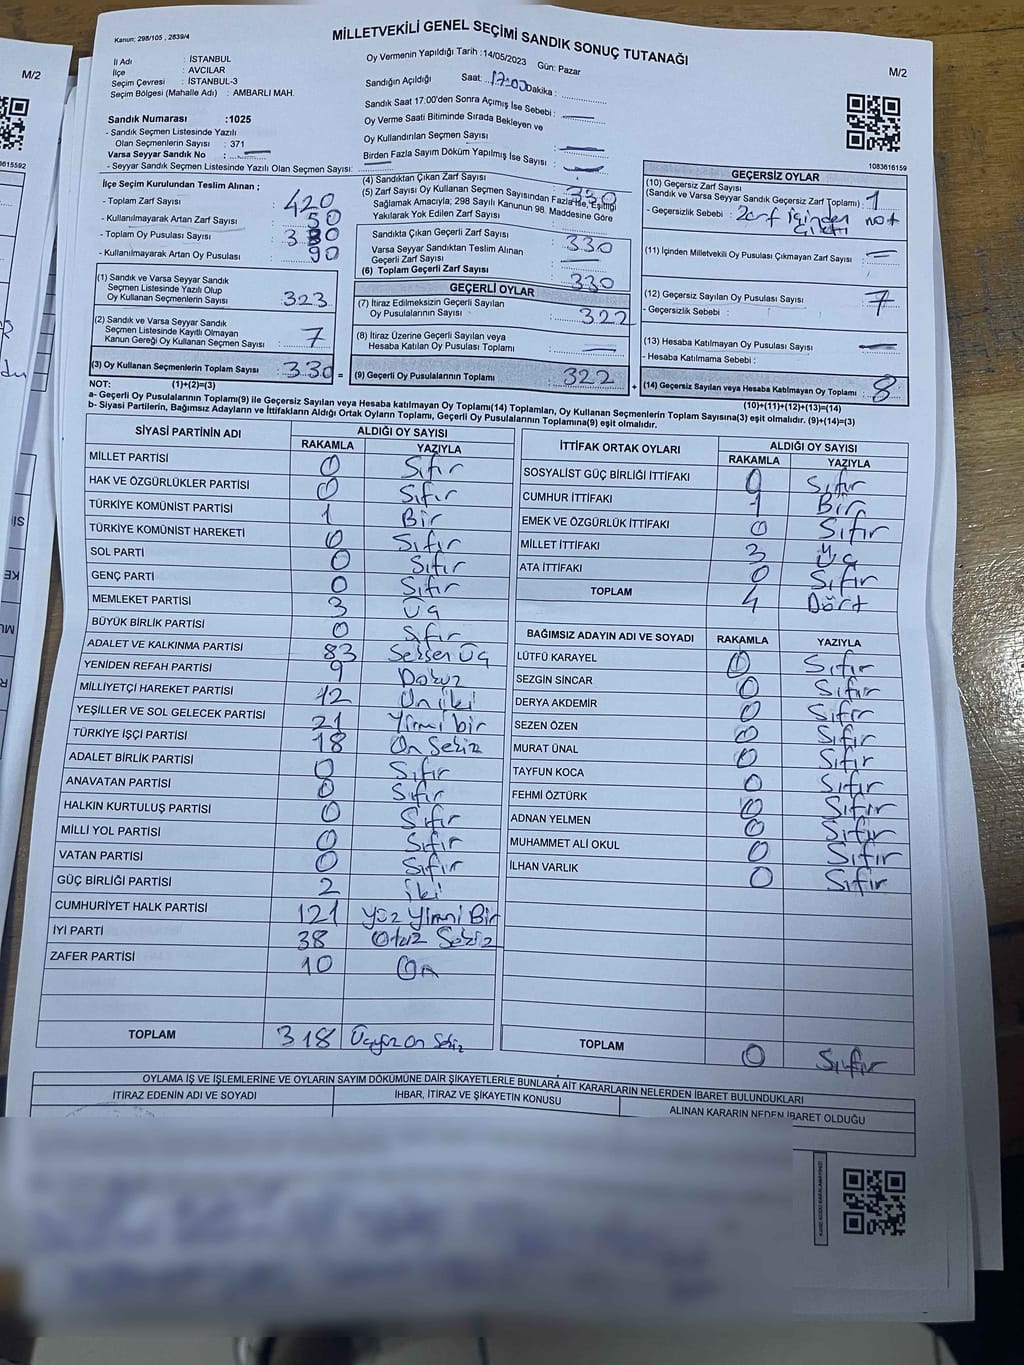 Kanun: 298/105 , 2839/4
MİLLETVEKİLİ GENEL SEÇİMİ SANDIK SONUÇ TUTANAĞI
M/2
M/2
İl Adı : İSTANBUL
İlçe : AVCILAR
Seçim Çevresi : İSTANBUL-3
Seçim Bölgesi (Mahalle Adı) : AMBARLI MAH.
Oy Vermenin Yapıldığı Tarih :14/05/2023 Gün: Pazar
Sandığın Açıldığı Saat: 17:00 Dakika :
Sandık Saat 17:00'den Sonra Açımış İse Sebebi : —
Oy Verme Saati Bitiminde Sırada Bekleyen ve
Oy Kullandırılan Seçmen Sayısı —
Birden Fazla Sayım Döküm Yapılmış İse Sayısı —
Sandık Numarası :1025
- Sandık Seçmen Listesinde Yazılı
Olan Seçmenlerin Sayısı : 371
Varsa Seyyar Sandık No : —
- Seyyar Sandık Seçmen Listesinde Yazılı Olan Seçmen Sayısı:
1083616159
İlçe Seçim Kurulundan Teslim Alınan ;
- Toplam Zarf Sayısı 420
- Kullanılmayarak Artan Zarf Sayısı 50
- Toplam Oy Pusulası Sayısı
- Kullanılmayarak Artan Oy Pusulası 90
(1) Sandık ve Varsa Seyyar Sandık
Seçmen Listesinde Yazılı Olup
Oy Kullanan Seçmenlerin Sayısı : 323
(2) Sandık ve Varsa Seyyar Sandık
Seçmen Listesinde Kayıtlı Olmayan
Kanun Gereği Oy Kullanan Seçmen Sayısı : 7
(3) Oy Kullanan Seçmenlerin Toplam Sayısı : 330 =
(4) Sandıktan Çıkan Zarf Sayısı : 330
(5) Zarf Sayısı Oy Kullanan Seçmen Sayısından Fazla İse, Eşitliği
Sağlamak Amacıyla; 298 Sayılı Kanunun 98. Maddesine Göre
Yakılarak Yok Edilen Zarf Sayısı
Sandıkta Çıkan Geçerli Zarf Sayısı : 330
Varsa Seyyar Sandıktan Teslim Alınan
Geçerli Zarf Sayısı —
(6) Toplam Geçerli Zarf Sayısı : 330
GEÇERLİ OYLAR
(7) İtiraz Edilmeksizin Geçerli Sayılan
Oy Pusulalarının Sayısı : 322
(8) İtiraz Üzerine Geçerli Sayılan veya
Hesaba Katılan Oy Pusulası Toplamı : —
(9) Geçerli Oy Pusulalarının Toplamı : 322 +
GEÇERSİZ OYLAR
(10) Geçersiz Zarf Sayısı
(Sandık ve Varsa Seyyar Sandık Geçersiz Zarf Toplamı) : 1
- Geçersizlik Sebebi : Zarf içinden not
çıktı
(11) İçinden Milletvekili Oy Pusulası Çıkmayan Zarf Sayısı : —
(12) Geçersiz Sayılan Oy Pusulası Sayısı : 7
- Geçersizlik Sebebi :
(13) Hesaba Katılmayan Oy Pusulası Sayısı : —
- Hesaba Katılmama Sebebi :
(14) Geçersiz Sayılan veya Hesaba Katılmayan Oy Toplamı : 8
NOT: (1)+(2)=(3)
(10)+(11)+(12)+(13)=(14)
a- Geçerli Oy Pusulalarının Toplamı(9) ile Geçersiz Sayılan veya Hesaba katılmayan Oy Toplamı(14) Toplamları, Oy Kullanan Seçmenlerin Toplam Sayısına(3) eşit olmalıdır. (9)+(14)=(3)
b- Siyasi Partilerin, Bağımsız Adayların ve İttifakların Aldığı Ortak Oyların Toplamı, Geçerli Oy Pusulalarının Toplamına(9) eşit olmalıdır.
SİYASİ PARTİNİN ADI ALDIĞI OY SAYISI
RAKAMLA YAZIYLA
MİLLET PARTİSİ 0 Sıfır
HAK VE ÖZGÜRLÜKLER PARTİSİ 0 Sıfır
TÜRKİYE KOMÜNİST PARTİSİ 1 Bir
TÜRKİYE KOMÜNİST HAREKETİ 0 Sıfır
SOL PARTİ 0 Sıfır
GENÇ PARTİ 0 Sıfır
MEMLEKET PARTİSİ 3 Üç
BÜYÜK BİRLİK PARTİSİ 0 Sıfır
ADALET VE KALKINMA PARTİSİ 83 Seksen Üç
YENİDEN REFAH PARTİSİ 9 Dokuz
MİLLİYETÇİ HAREKET PARTİSİ 12 On iki
YEŞİLLER VE SOL GELECEK PARTİSİ 21 Yirmi bir
TÜRKİYE İŞÇİ PARTİSİ 18 On Sekiz
ADALET BİRLİK PARTİSİ 0 Sıfır
ANAVATAN PARTİSİ 0 Sıfır
HALKIN KURTULUŞ PARTİSİ 0 Sıfır
MİLLİ YOL PARTİSİ 0 Sıfır
VATAN PARTİSİ 0 Sıfır
GÜÇ BİRLİĞİ PARTİSİ 2 iki
CUMHURİYET HALK PARTİSİ 121 Yüz Yirmi Bir
İYİ PARTİ 38 Otuz Sekiz
ZAFER PARTİSİ 10 On
TOPLAM 318 Üçyüz On Sekiz
İTTİFAK ORTAK OYLARI ALDIĞI OY SAYISI
RAKAMLA YAZIYLA
SOSYALİST GÜÇ BİRLİĞİ İTTİFAKI 0 Sıfır
CUMHUR İTTİFAKI 1 Bir
EMEK VE ÖZGÜRLÜK İTTİFAKI 0 Sıfır
MİLLET İTTİFAKI 3 Üç
ATA İTTİFAKI 0 Sıfır
TOPLAM 4 Dört
BAĞIMSIZ ADAYIN ADI VE SOYADI RAKAMLA YAZIYLA
LÜTFÜ KARAYEL 0 Sıfır
SEZGİN SİNCAR 0 Sıfır
DERYA AKDEMİR 0 Sıfır
SEZEN ÖZEN 0 Sıfır
MURAT ÜNAL 0 Sıfır
TAYFUN KOCA 0 Sıfır
FEHMİ ÖZTÜRK 0 Sıfır
ADNAN YELMEN 0 Sıfır
MUHAMMET ALİ OKUL 0 Sıfır
İLHAN VARLIK 0 Sıfır
TOPLAM 0 Sıfır
OYLAMA İŞ VE İŞLEMLERİNE VE OYLARIN SAYIM DÖKÜMÜNE DAİR ŞİKAYETLERLE BUNLARA AİT KARARLARIN NELERDEN İBARET BULUNDUKLARI
İTİRAZ EDENİN ADI VE SOYADI İHBAR, İTİRAZ VE ŞİKAYETİN KONUSU ALINAN KARARIN NEDEN İBARET OLDUĞU